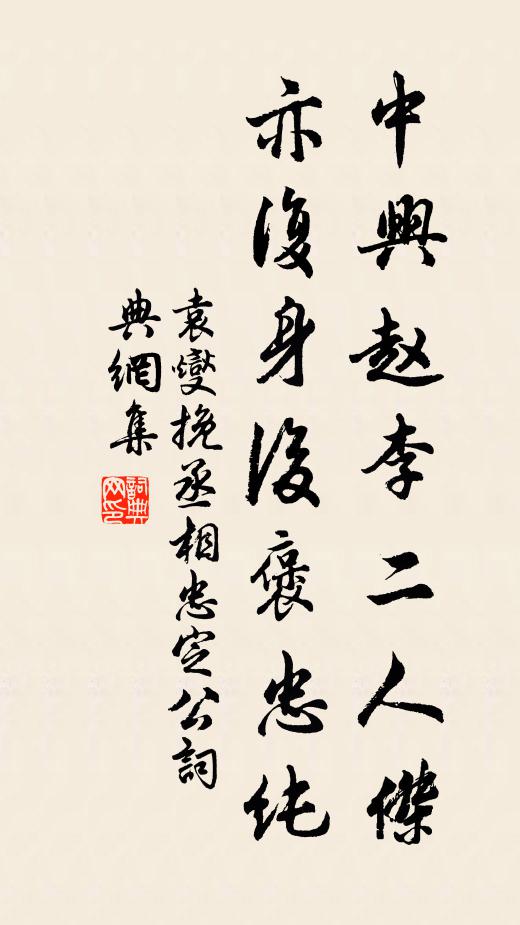 中興赵李二人傑
亦復身後褒忠纯
袁燮挽丞相忠定公詞
典網集
詞典网印